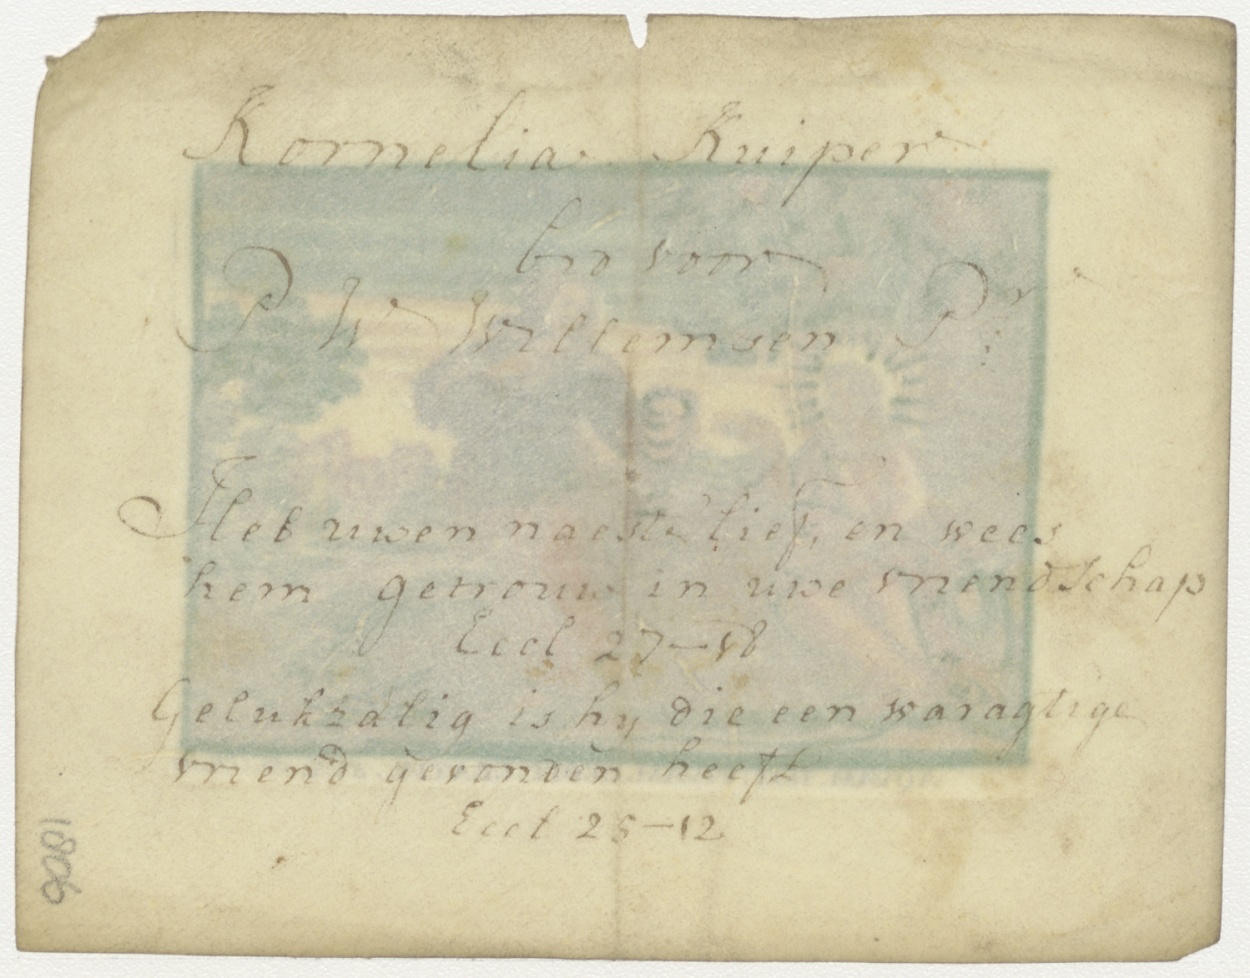 Kornelia Kuiper
bid voor
P W Willemsen Pr
Heb uwen naeste lief, en wees
hem getrouw in uwe vriendschap
Eccl 27-18
Gelukzalig is hy die een waragtige
vriend gevonden heeft
Eccl 25-12
1806